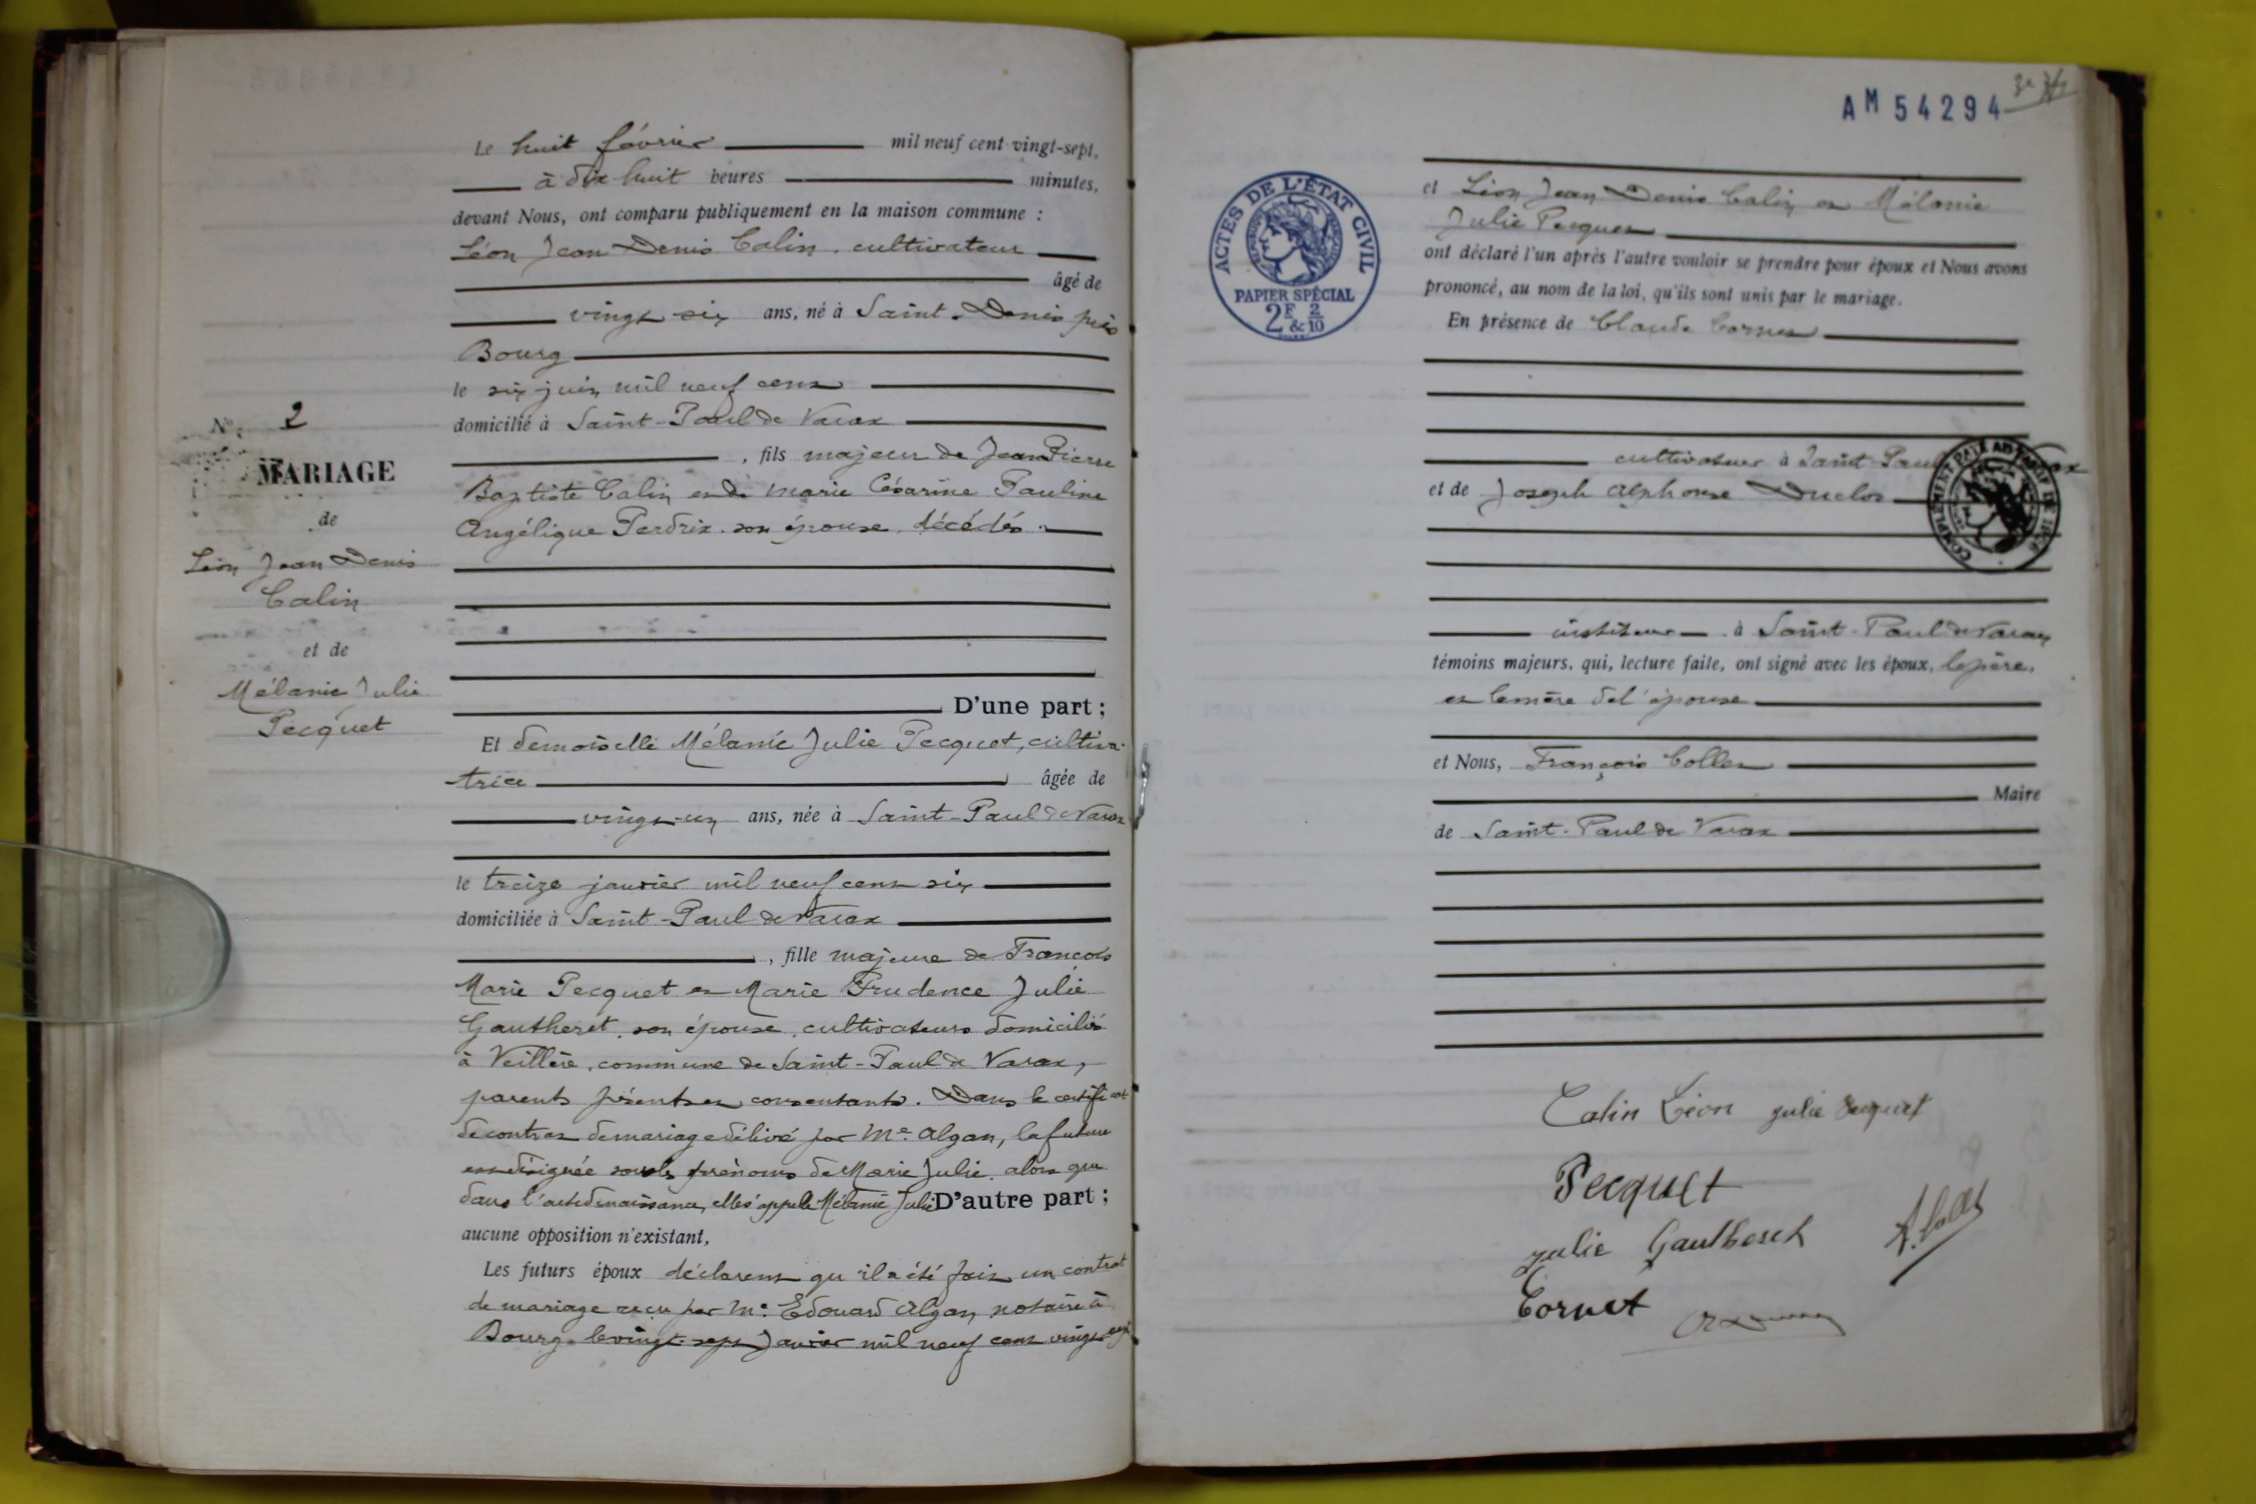 Le huit février mil neuf cent vingt-sept,
à dix huit heures minutes,
devant Nous, ont comparu publiquement en la maison commune :
Léon Jean Denis Calin, cultivateur
âgé de
vingt-six ans, né à Saint-Denis près
Bourg
le six juin mil neuf cent
domicilié à Saint-Paul de Varax
, fils majeur de Jean Pierre
Baptiste Calin et de Marie Césarine Pauline
Angélique Perdrix son épouse, décédés.
D'une part ;
N° 2
MARIAGE
de
Léon Jean Denis
Calin
et de
Mélanie Julie
Pecquet
Et demoiselle Mélanie Julie Pecquet, cultiva-
trice âgée de
vingt-un ans, née à Saint-Paul de Varax
le treize janvier mil neuf cent six
domiciliée à Saint-Paul de Varax
, fille majeure de François
Marie Pecquet et Marie Prudence Julie
Gautheret, son épouse, cultivateurs domiciliés
à Veillère, commune de Saint-Paul de Varax,
parents présents et consentants. Dans le certificat
de contrat de mariage délivré par Me Algan, la future
est désignée sous les prénoms de Marie Julie alors que
dans l'acte de naissance, elle s'appelle Mélanie Julie D'autre part ;
aucune opposition n'existant,
Les futurs époux déclarent qu'il a été fait un contrat
de mariage reçu par Me Edouard Algan, notaire à
Bourg le vingt-sept janvier mil neuf cent vingt-sept
AM 54294
ACTES DE L'ÉTAT CIVIL
PAPIER SPÉCIAL
2F & 2/10
et Léon Jean Denis Calin et Mélanie
Julie Pecquet
ont déclaré l'un après l'autre vouloir se prendre pour époux et Nous avons
prononcé, au nom de la loi, qu'ils sont unis par le mariage.
En présence de Claude Cornet
cultivateur à Saint-Paul
et de Joseph Alphonse Duclos
instituteur à Saint-Paul de Varax
témoins majeurs, qui, lecture faite, ont signé avec les époux, le père,
et la mère de l'épouse
et Nous, François Collet
Maire
de Saint-Paul de Varax
Calin Léon Julie Pecquet
Pecquet
Julie Gautheret
Cornet